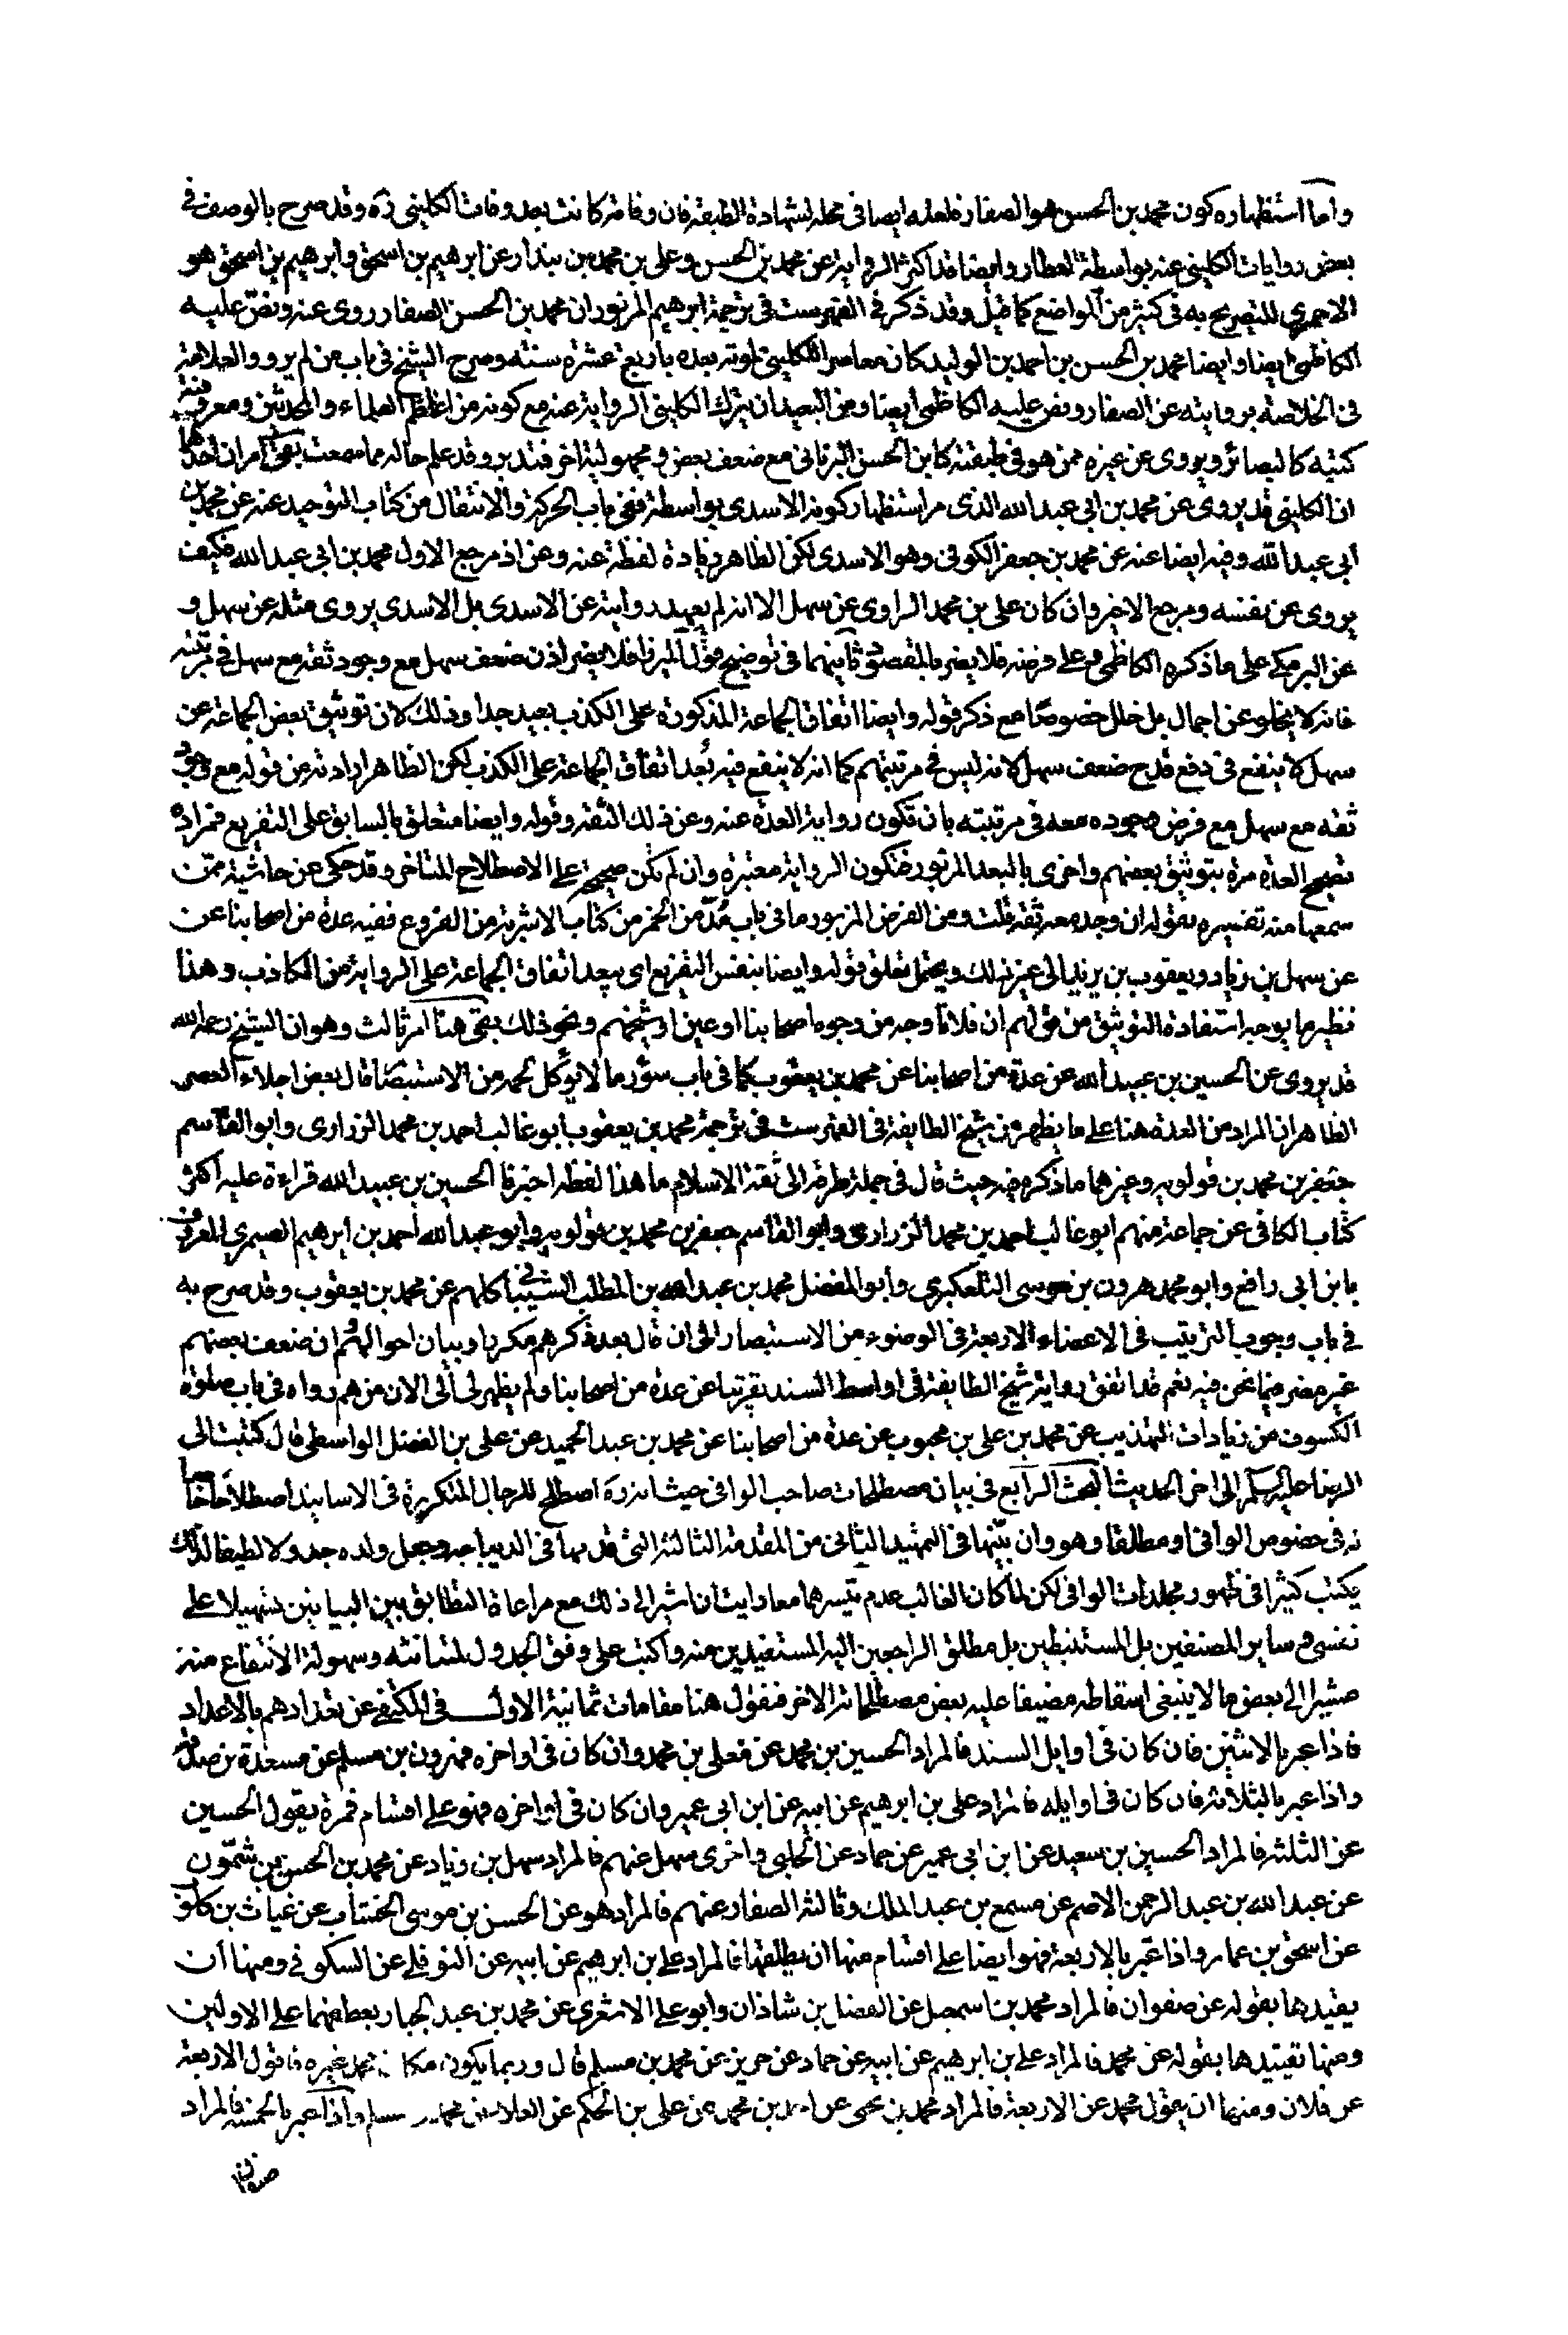 واما استظهاره كون محمد بن الحسن هو الصفار فلعله ايضا فى محله لشهادة الطبقة فان وفاته كانت بعد وفات الكلينى ره وقد صرح بالوصف فى
بعض روايات الكلينى عنه بواسطة العطار وايضا قد اكثر الرواية عن محمد بن الحسن وعلى بن محمد بن بندار عن ابرهيم بن اسحق وابرهيم بن اسحق هو
الاحمرى للتصريح به فى كثير من المواضع كما قيل وقد ذكر فى الفهرست فى ترجمة ابرهيم المزبور ان محمد بن الحسن الصفار روى عنه ونص عليه
الكاظمى ايضا وايضا محمد بن الحسن بن احمد بن الوليد كان معاصرا للكلينى لموته بعده باربع عشرة سنته وصرح الشيخ فى باب من لم يرو والعلامة
فى الخلاصة بروايته عن الصفار ونص عليه الكاظمى ايضا ومن البعيد ان يترك الكلينى الرواية عنه مع كونه من اعاظم العلماء والمحدثين ومعروفية
كتبه كالبصائر ويروى عن غيره ممن هو فى طبقته كابن الحسن البرنانى مع ضعف بعض ومجهولية اخر فتدبر وقد علم حاله مما سمعت بقى امران احدهما
ان الكلينى قد يروى عن محمد بن ابى عبد الله الذى مر استظهار كونه الاسدى بواسطة ففى باب الحركة والانتقال من كتاب التوحيد عنه عن محمد بن
ابى عبد الله وفيه ايضا عنه عن محمد بن جعفر الكوفى وهو الاسدى لكن الظاهر زيادة لفظة عنه وعن اذ مرجع الاول محمد بن ابى عبد الله فكيف
يروى عن نفسه ومرجع الاخر وان كان على بن محمد الراوى عن سهل الا انه لم يعهد روايته عن الاسدى بل الاسدى يروى مثله عن سهل و
عن البرمكى على ما ذكره الكاظمى وعلى فرضه فلا يضر بالمقصود ثانيهما فى توضيح قول الميرزا فلا يضر اذن ضعف سهل مع وجود ثقة مع سهل فى مرتبته
فانه لا يخلو عن اجمال بل خلل خصوصا مع ذكر قوله وايضا اتفاق الجماعة المذكورة على الكذب بعيد جدا وذلك لان توثيق بعض الجماعة عن
سهل لا ينفع فى دفع قدح ضعف سهل لانه ليس فى مرتبتهم كما انه لا ينفع فيه بعد اتفاق الجماعة على الكذب لكن الظاهر ارادته من قوله مع وجود
ثقه مع سهل مع فرض وجوده معه فى مرتبته بان تكون رواية العدة عنه وعن ذلك الثقة وقوله وايضا متعلق بالسابق على التفريع فمراده
تصحيح العدة مرة بتوثيق بعضهم واخرى بالبعد المزبور فتكون الرواية معتبرة وان لم تكن صحيحة على الاصطلاح المتاخر وقد حكى عن حاشية ممن
سمعها منه تفسيره بقوله ان وجد معه ثقة قلت ومن الفرض المزبور ما فى باب مد من الخمر من كتاب الاشربة من الفروع ففيه عدة من اصحابنا عن
عن سهل بن زياد ويعقوب بن يزيد الى غير ذلك ويحتمل تعلق قوله وايضا بنفس التفريع اى يبعد اتفاق الجماعة على الرواية من الكاذب وهذا
نظير ما يوجه استفادة التوثيق من قولهم ان فلانا وجه من وجوه اصحابنا او عين او شيخهم ونحو ذلك بقى هنا امر ثالث وهو ان الشيخ رحمه الله
قد يروى عن الحسين بن عبيد الله عن عدة من اصحابنا عن محمد بن يعقوب كما فى باب سؤر ما لا يوكل لحمه من الاستبصار قال بعض اجلاء العصر
الظاهر ان المراد من العدة هنا على ما يظهر من شيخ الطايفة فى الفهرست فى ترجمة محمد بن يعقوب ابو غالب احمد بن محمد الزرارى وابو القاسم
جعفر بن محمد بن قولويه وغيرهما ما ذكره فيه حيث قال فى جملة طرقه الى ثقة الاسلام ما هذا لفظه اخبرنا الحسين بن عبيد الله قراءة عليه اكثر
كتاب الكافى عن جماعة منهم ابو غالب احمد بن محمد الزرارى وابو القاسم جعفر بن محمد بن قولويه وابو عبد الله احمد بن ابرهيم الصيمرى المعروف
بابن ابى رافع وابو محمد هرون بن موسى التلعكبرى وابو المفضل محمد بن عبد الله بن المطلب الشيبانى كلهم عن محمد بن يعقوب وقد صرح به
فى باب وجوب الترتيب فى الاعضاء الاربعة فى الوضوء من الاستبصار الى ان قال بعد ذكرهم مكررا وبيان احوالهم ان ضعف بعضهم
غير مضر فيما نحن فيه نعم قد اتفق رواية شيخ الطايفة فى اواسط السند تقريبا عن عدة من اصحابنا ولم يظهر لى الى الان من هم رواه فى باب صلوة
الكسوف من زيادات التهذيب عن محمد بن على بن محبوب عن عدة من اصحابنا عن محمد بن عبد الحميد عن على بن الفضل الواسطى قال كتبت الى
الرضا عليه السلم الى اخر الحديث البحث الرابع فى بيان مصطلحات صاحب الوافى حيث انه ره اصطلح للرجال المتكررة فى الاسانيد اصطلاحا خاصا
به فى خصوص الوافى او مطلقا وهو وان بينها فى التمهيد الثانى من المقدمة الثالثة التى قدمها فى الديباجه وجعل ولده جدولا لطيفا لذلك
يكتب كثيرا فى ظهور مجلدات الوافى لكن لما كان الغالب عدم تيسرهما معا رايت ان اشير الى ذلك مع مراعاة التطابق بين البيانين تسهيلا على
نفسى وساير المصنفين بل المستنبطين بل مطلق الراجعين اليه المستفيدين منه واكتب على وفق الجدول لمتانته وسهولة الانتفاع منه
مشيرا الى بعض ما لا ينبغى اسقاطه مضيفا عليه بعض مصطلحاته الاخر فنقول هنا مقامات ثمانية الاول فى المكتفى عن تعدادهم بالاعداد
فاذا عبر بالاثنين فان كان فى اوايل السند فالمراد الحسين بن محمد عن معلى بن محمد وان كان فى اواخره فهرون بن مسلم عن مسعدة بن صدقة
واذا عبر بالثلاثة فان كان فى اوايله فالمراد على بن ابرهيم عن ابيه عن ابن ابى عمير وان كان فى اواخره فهو على اقسام فمرة يقول الحسين
عن الثلثة فالمراد الحسين بن سعيد عن ابن ابى عمير عن حماد عن الحلبى واخرى سهل عنهم فالمراد سهل بن زياد عن محمد بن الحسن بن شمون
عن عبد الله بن عبد الرحمن الاصم عن مسمع بن عبد الملك وثالثة الصفار عنهم فالمراد هو عن الحسن بن موسى الخشاب عن غياث بن كلوب
عن اسحق بن عمار واذا عبر بالاربعة فهو ايضا على اقسام منها ان يطلقها فالمراد على بن ابرهيم عن ابيه عن النوفلى عن السكونى ومنها ان
يقيدها بقوله عن صفوان فالمراد محمد بن اسمعيل عن الفضل بن شاذان وابو على الاشعرى عن محمد بن عبد الجبار بعطفهما على الاولين
ومنها تقييدها بقوله عن محمد فالمراد على بن ابرهيم عن ابيه عن حماد عن حريز عن محمد بن مسلم قال وربما يكون مكان محمد غيره فاقول الاربعة
عن فلان ومنها ان يقول محمد عن الاربعة فالمراد محمد بن يحيى عن احمد بن محمد عن على بن الحكم عن العلاء عن محمد بن مسلم واذا عبر بالخمسة فالمراد